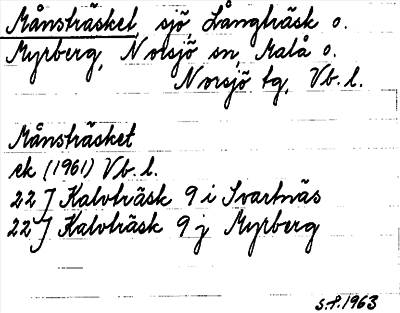 Månsträsket, sjö, Långträsk o.
Myrberg, Norsjö sn, Malå o.
Norsjö tg, Vb. l.
Månsträsket
ek (1961) Vb. l.
22 J Kalvträsk 9 i Svartnäs
22 J Kalvträsk 9 j Myrberg
S.P. 1963